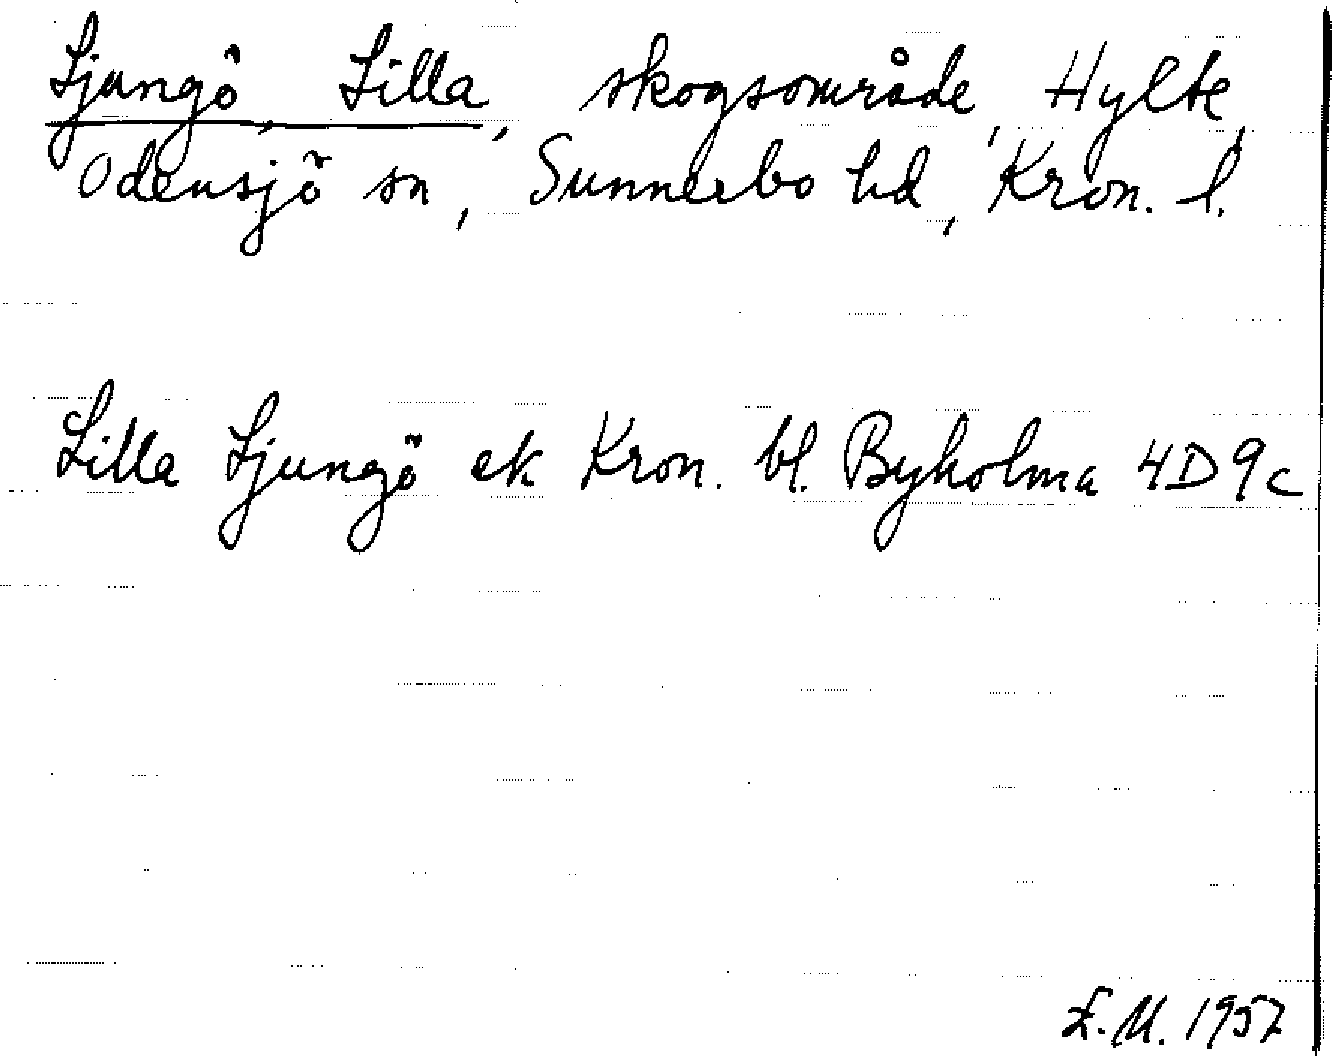 Ljungö, Lilla, skogsområde, Hylte,
Odensjö sn, Sunnerbo hd, Kron. l.
Lilla Ljungö ek Kron. bl. Byholma 4D9c
L.M. 1957